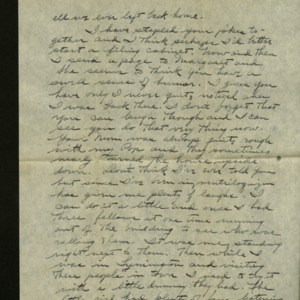 left back home.
I have stapled your jokes to-
gether and I think perhaps I'd better
start a filing cabinet. Now and then
I send a page to Margaret and
she seems to think you have a
swell sense of humor. I guess you
have only I never quite noticed when
I was back there. I don't forget that
you can laugh though and I can
see you do that very thing now.
You and Mom was always pretty rough
with my Pop and they sometimes
nearly turned the house upside
down. Don't think I've ever told you
but since I've been in ventriloquism
has given me plenty of laughs. I
can do it a little and once I had
three fellows at one time running
out of the building to see who was
calling them. It was me standing
right next to them. Then while I
was in and visiting
these people in town I used to try it
with a little dummy they had. The
had